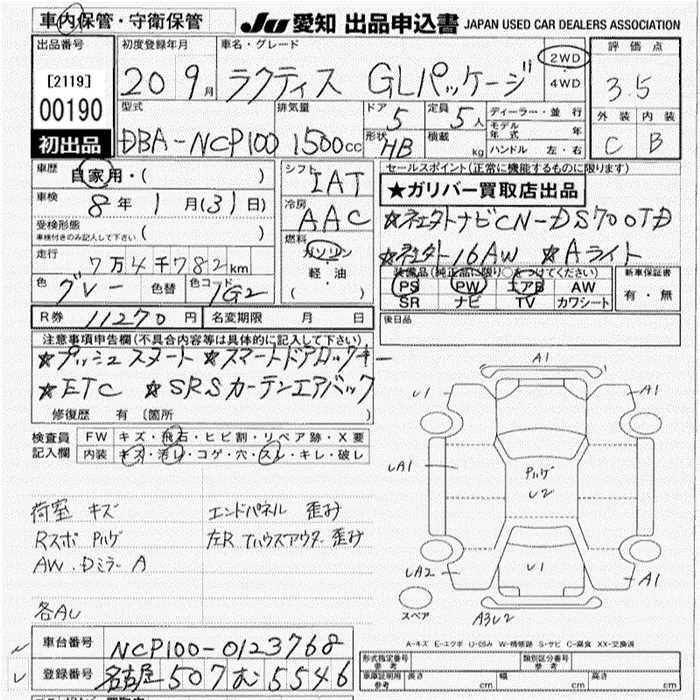 車内保管・守衛保管
JU 愛知 出品申込書 JAPAN USED CAR DEALERS ASSOCIATION
出品番号
[2119]
00190
初出品
初度登録年月
20 9月
車名・グレード
ラクティス GLパッケージ
2WD
・
4WD
評価点
3.5
外装 内装
C B
型式
DBA-NCP100
排気量
1500cc
ドア
5
定員
5人
形状
HB
積載
kg
ディーラー・並行
モデル年式 年
ハンドル 左・右
車歴
自家用・( )
車検
8年 1月(31)日
受検形態
車検付きのみ記入して下さい ( )
走行
7万4千782km
色
グレー
色替
色コード
1G2
シフト
IAT
冷房
AAC
燃料
ガソリン
軽・油
・( )
セールスポイント(正常に機能するものに限ります)
★ガリバー買取店出品
☆社外ナビCN-DS700TD
☆社外16AW ☆Aライト
装備品(純正品に限り○をつけてください)
PS PW エアB AW
SR ナビ TV カワシート
新車保証書
有・無
R券 11270円
名変期限 月 日
後日品
注意事項申告欄(不具合内容等は具体的に記入して下さい)
☆プッシュスタート ☆スマートドアロックキー
☆ETC ☆SRSカーテンエアバック
修復歴 有〔箇所 〕
検査員
記入欄
FW キズ・飛石・ヒビ割・リペア跡・X要
内装 キズ・汚レ・コゲ・穴・スレ・キレ・破レ
荷室 キズ
エンドパネル 歪み
Rスポ Pハゲ
AW・Dミラー A
各AU
A1
U1
A1
UA1
Pハゲ
U2
UA2
U1
A1
スペア
A3U2
A-キズ E-エクボ U-凹ミ W-補修跡 S-サビ C-腐食 XX-交換済
車台番号 NCP100-0123768
登録番号 名古屋 507 む 5546
形式指定番号
参考
類別区分番号
参考
車庫証明用
参考
長さ cm 幅 cm 高さ cm